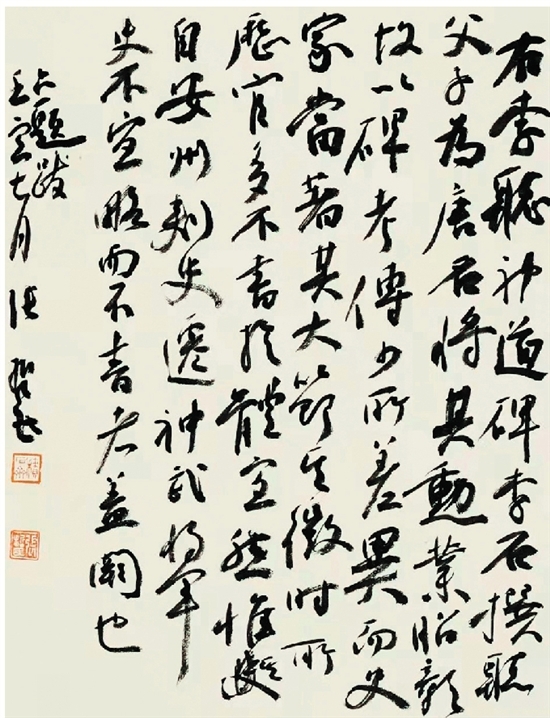 右李聽神道碑李石撰聽
父子為唐名將其勳業昭彰
故以碑考傳少所差異而史
家當著其大節其微時所
歷官多不書於體宜然惟
自安州刺史遷神武將軍
史不宜略而不書者蓋闕也
題跋
壬寅七月 張